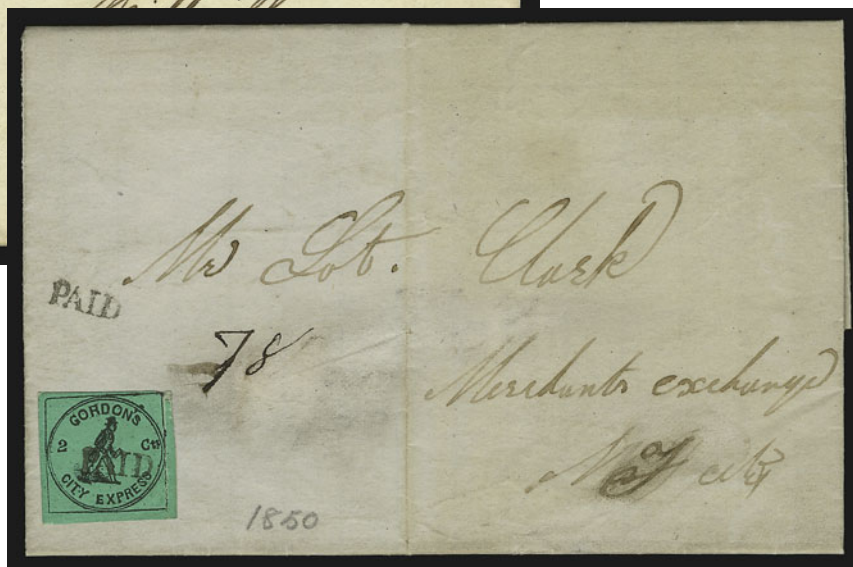 Mr Lot. Clark
PAID
78
Merchants exchange
N Y city
GORDON'S
2 Cts
PAID
CITY EXPRESS
1850